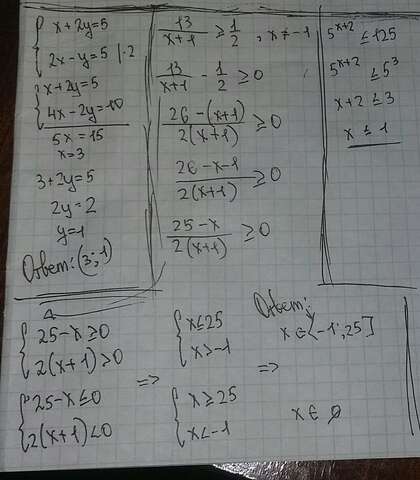 x+2y=5
2x-y=5 |·2
x+2y=5
4x-2y=10
5x=15
x=3
3+2y=5
2y=2
y=1
Ответ: (3;1)
13/(x+1) ≥ 1/2, x≠-1
13/(x+1) - 1/2 ≥ 0
(26-(x+1))/(2(x+1)) ≥ 0
(26-x-1)/(2(x+1)) ≥ 0
(25-x)/(2(x+1)) ≥ 0
5^(x+2) ≤ 125
5^(x+2) ≤ 5^3
x+2 ≤ 3
x ≤ 1
{ 25-x ≥ 0
2(x+1) > 0
{ 25-x ≤ 0
2(x+1) < 0
=>
{ x ≤ 25
x > -1
{ x ≥ 25
x < -1
=>
Ответ:
x ∈ (-1; 25]
x ∈ ∅